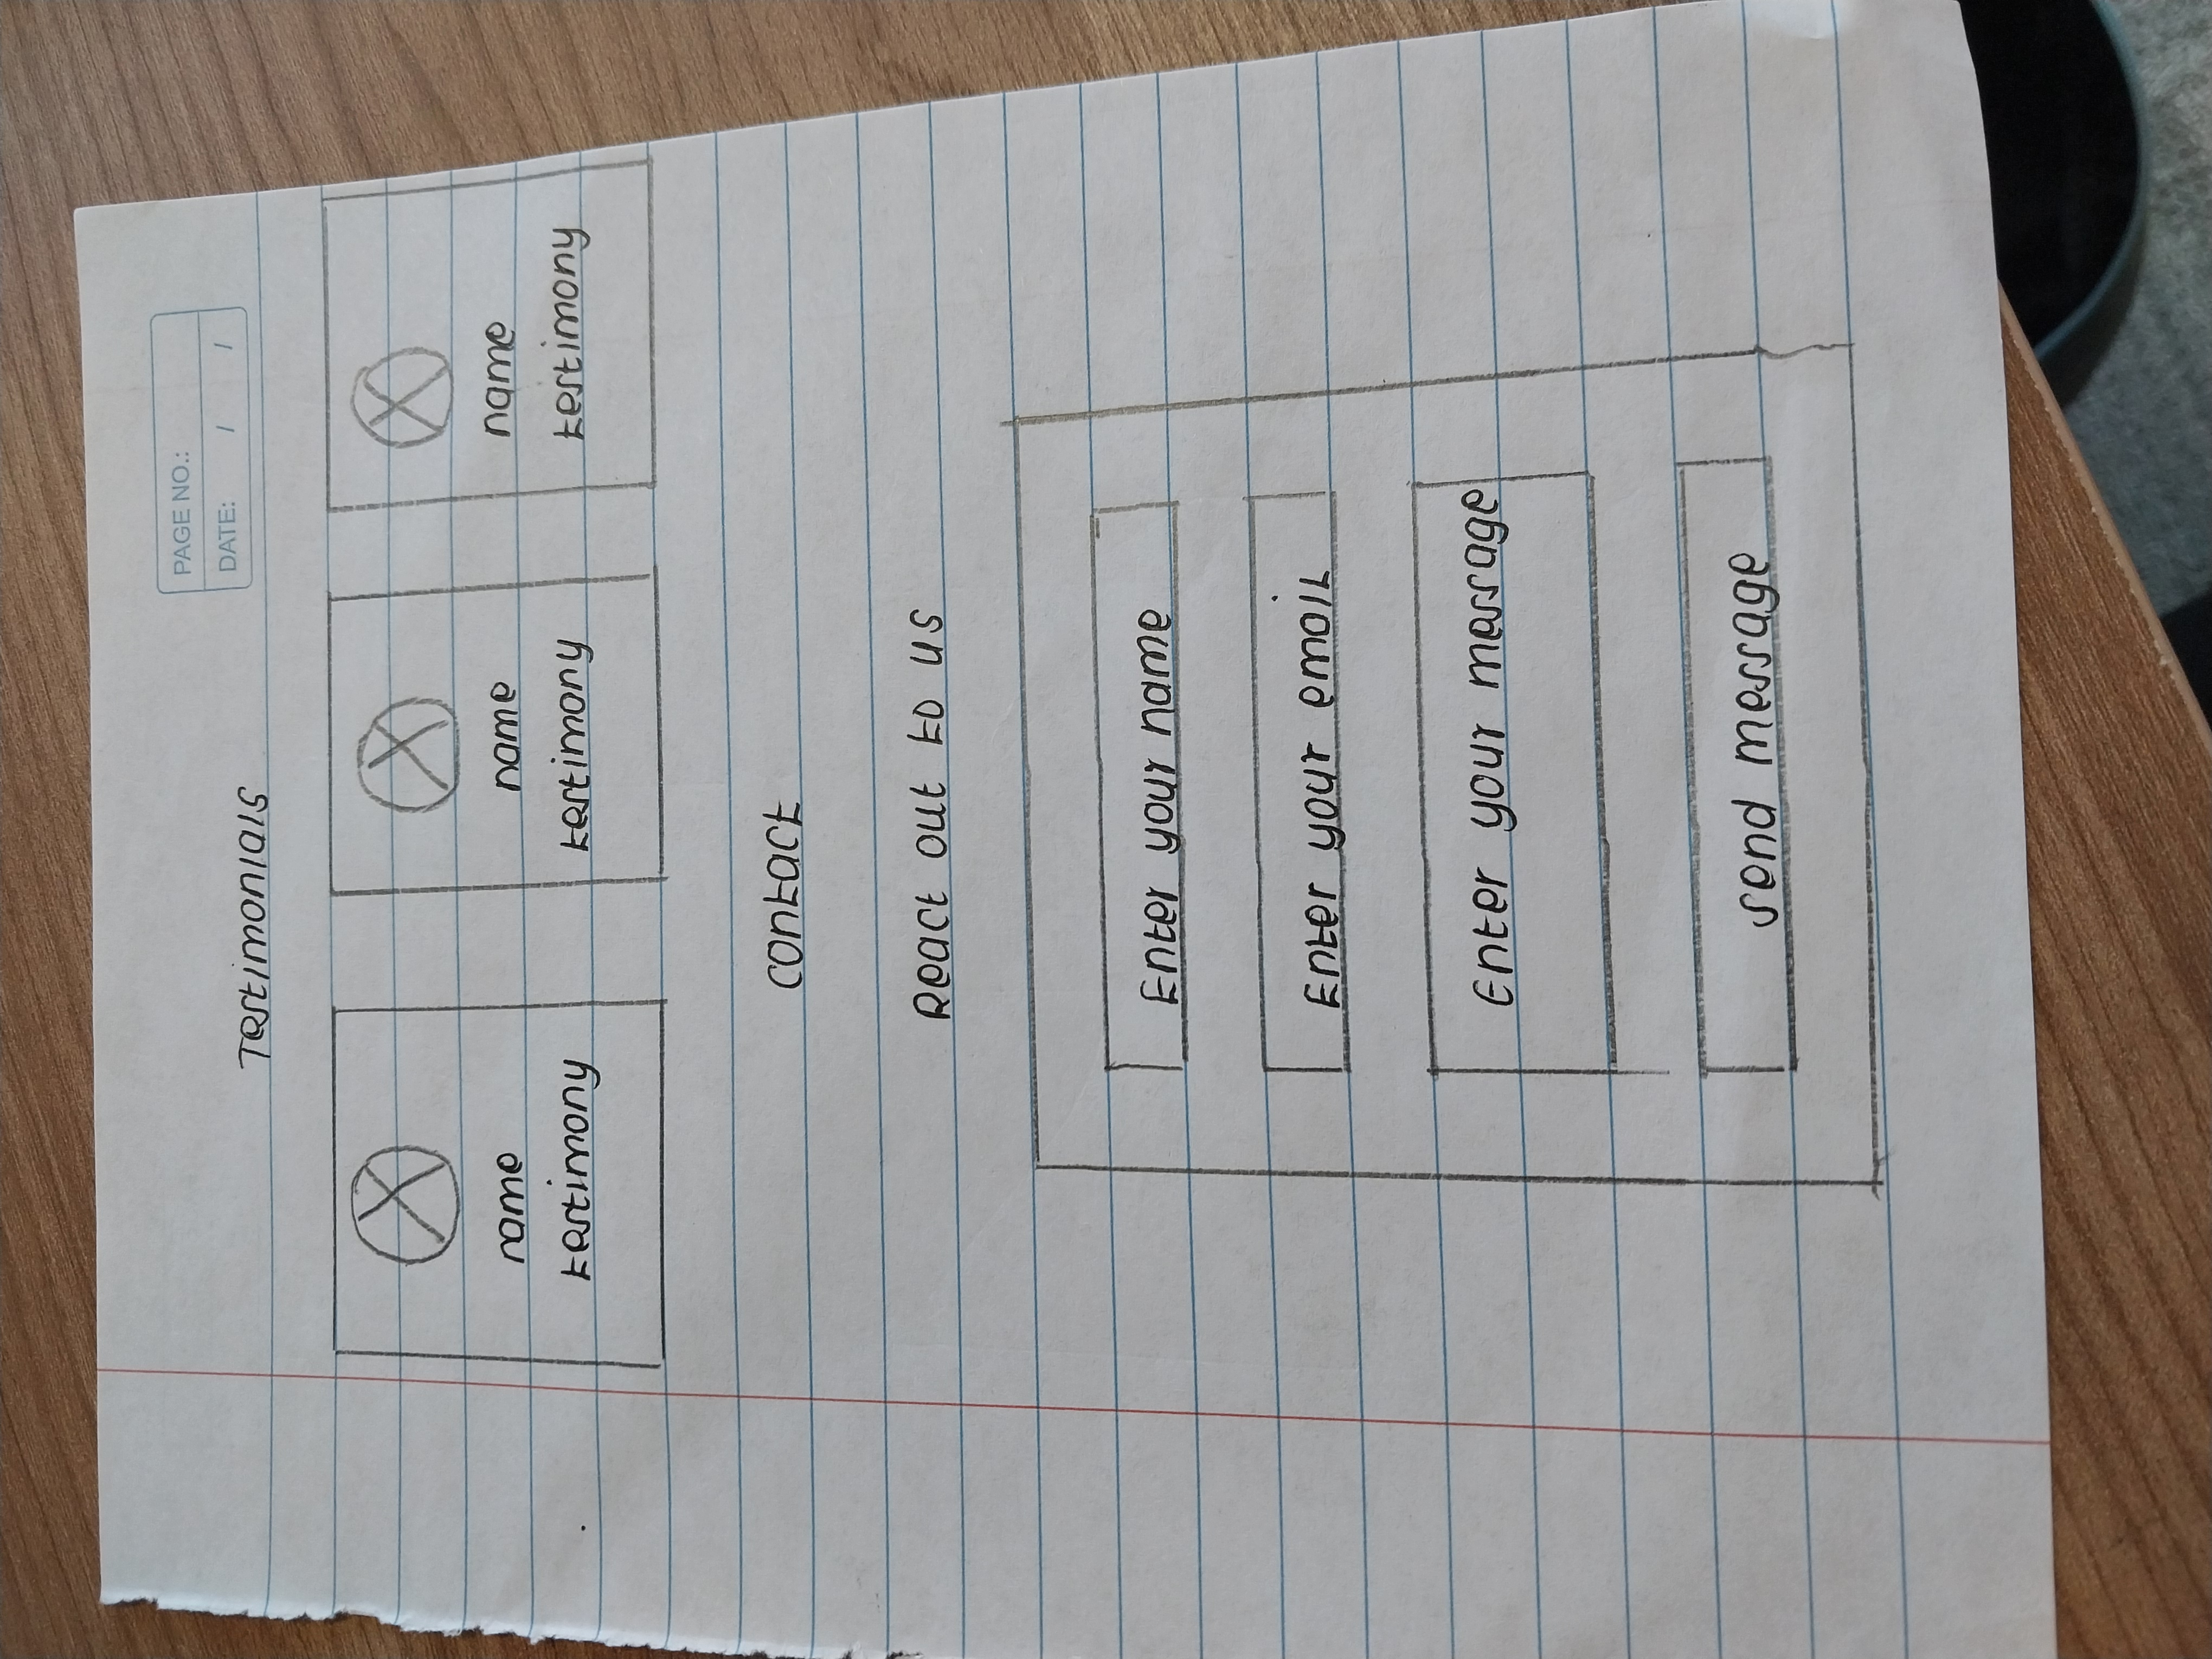 PAGE NO.:
DATE: / /
Testimonials
name name name
testimony testimony testimony
contact
React out to us
Enter your name
Enter your email
Enter your message
send message